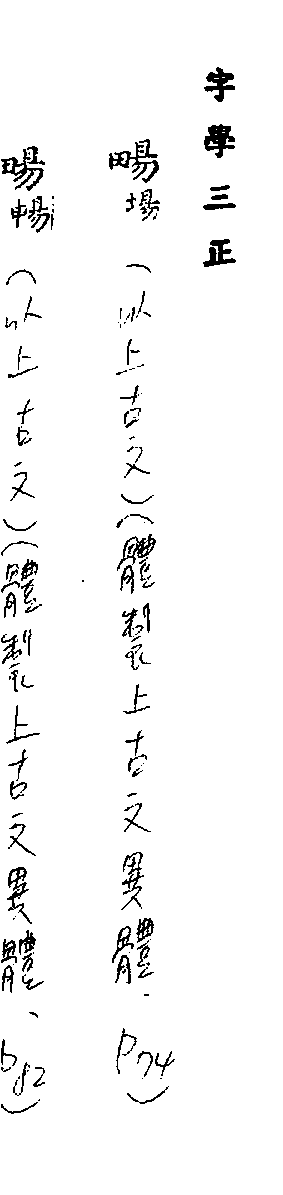 字學三正
畼場（以上古文）（體製上古文異體．P74）
畼暢（以上古文）（體製上古文異體、P82）